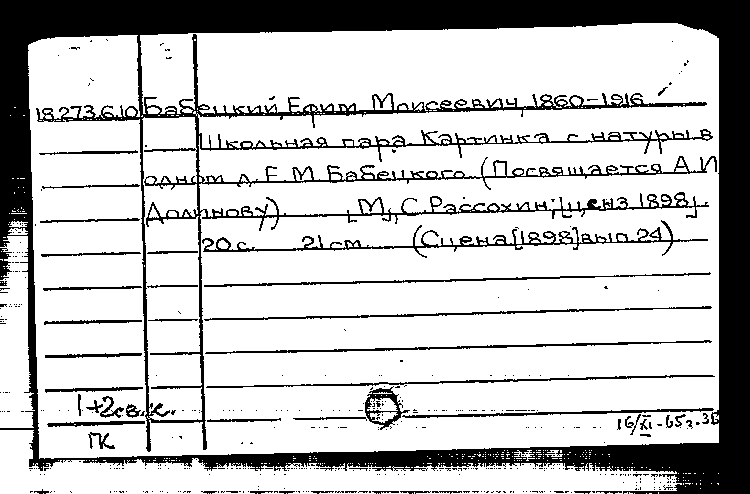 18.273.6.10 Бабецкий, Ефим Моисеевич, 1860-1916
Школьная пара. Картинка с натуры в
одном д. Е. М. Бабецкого. (Посвящается А. И.
Долинову). [М], С. Рассохин; [ценз. 1898].
20 с. 21 см. (Сцена [1898] вып. 24)
1+2св.к.
ПК
16/XI-65г.